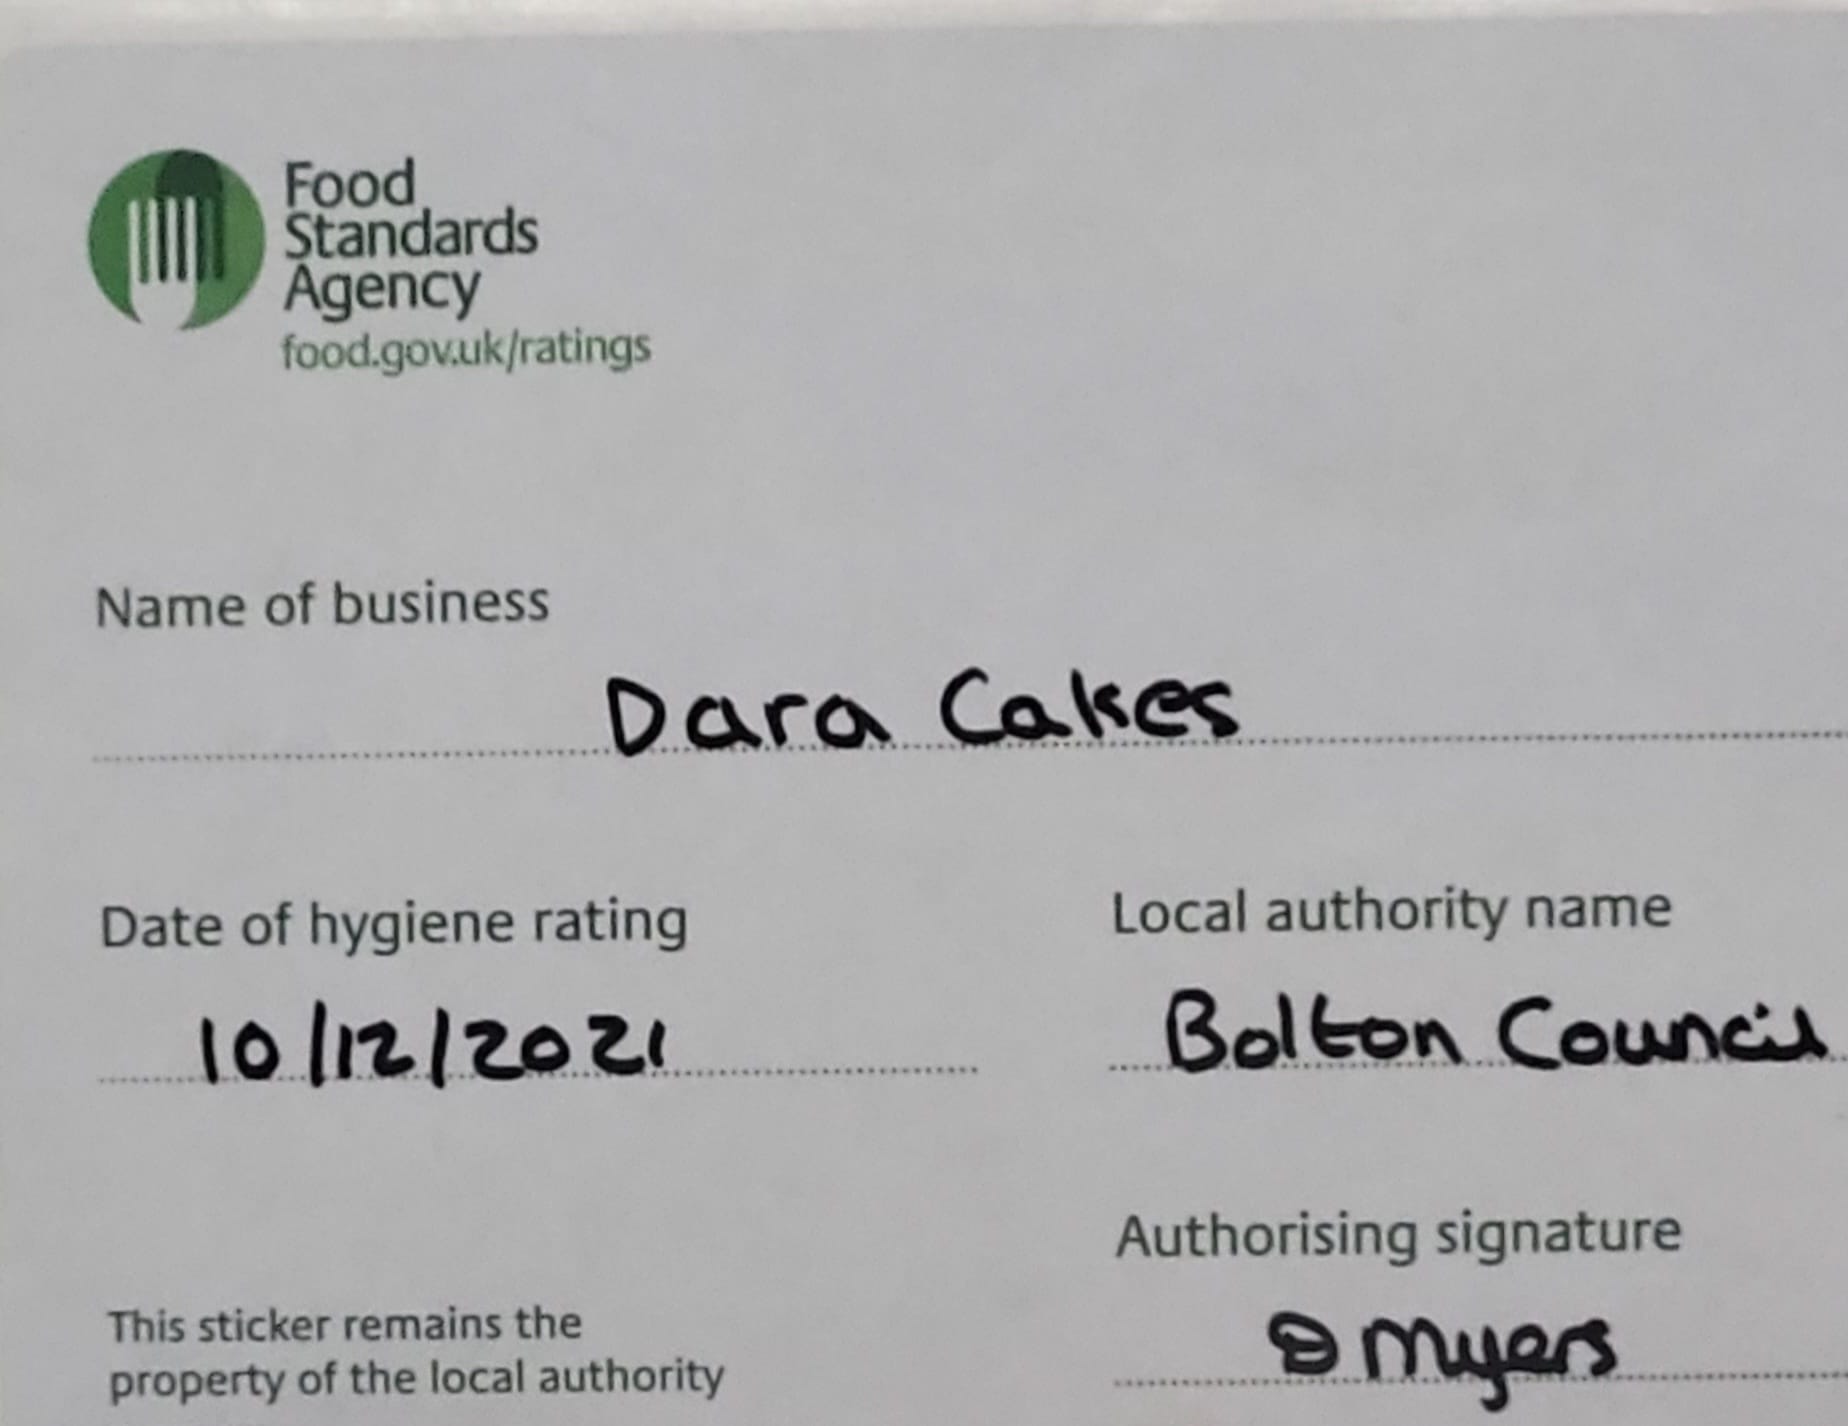 Food
Standards
Agency
food.gov.uk/ratings
Name of business
Dara Cakes
Date of hygiene rating
Local authority name
10/12/2021
Bolton Council
Authorising signature
Myers
This sticker remains the
property of the local authority